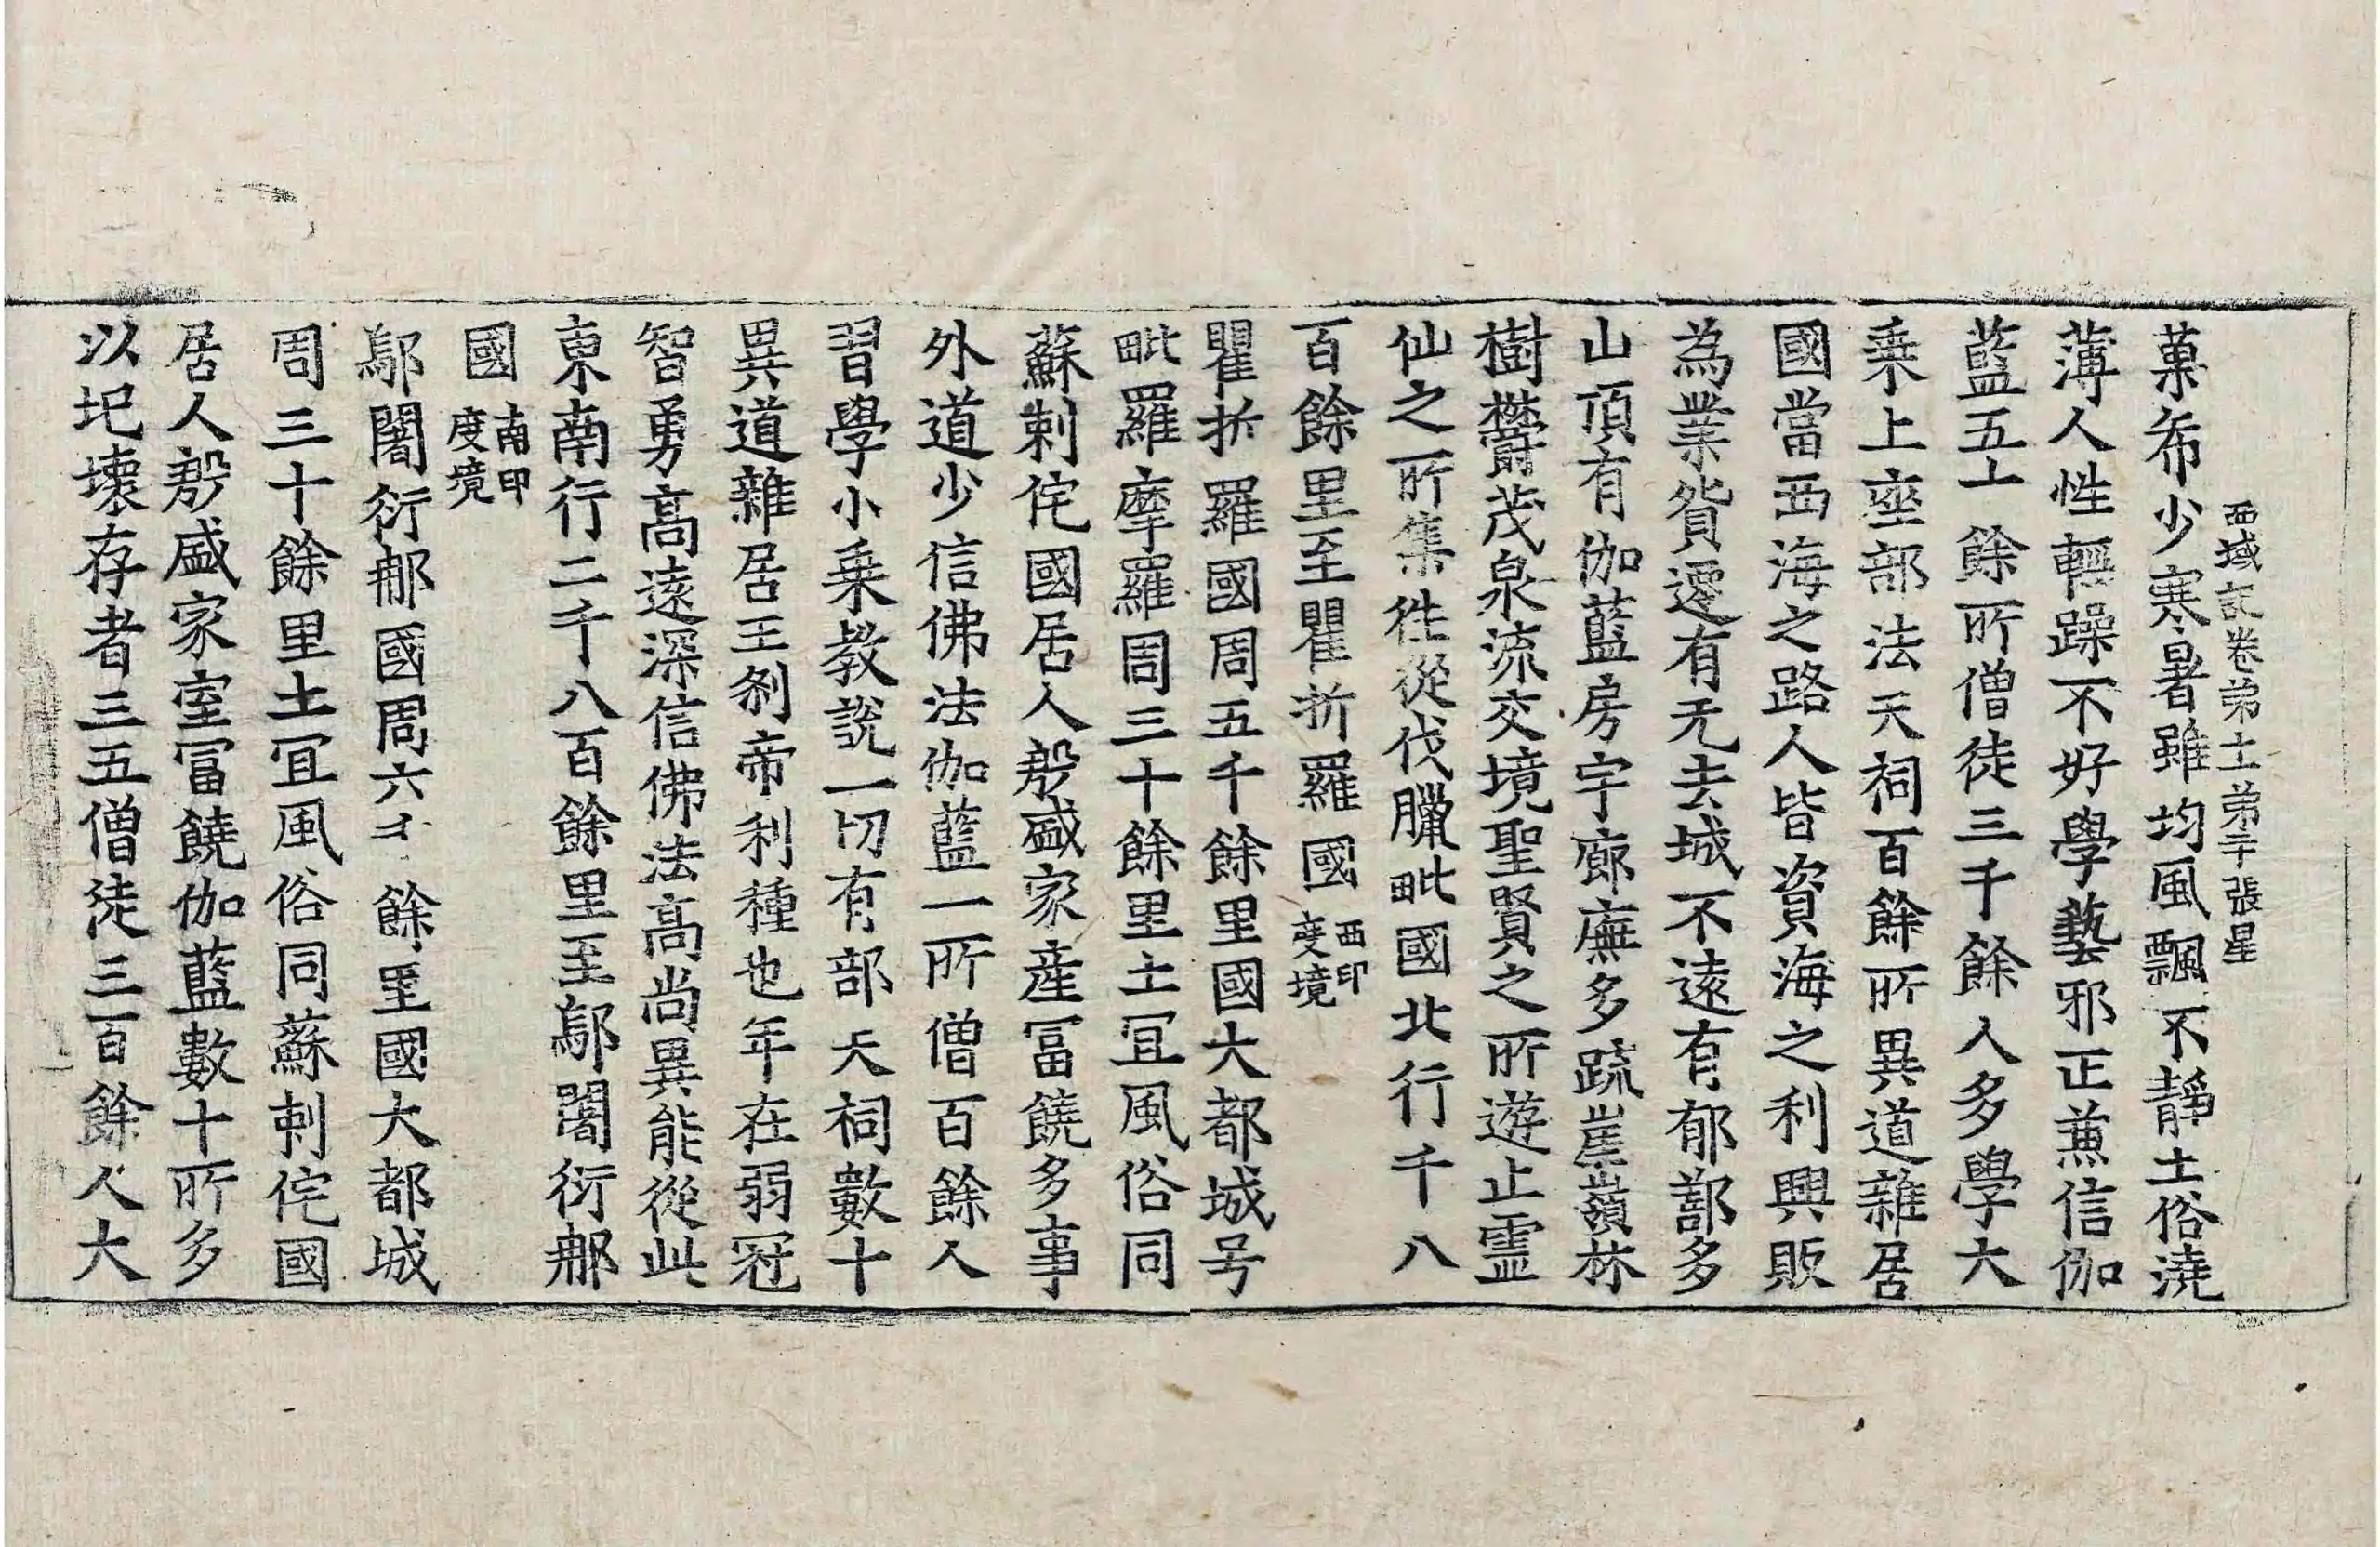 西域記卷第十一第二十張星
菓希少寒暑雖均風飄不靜土俗澆
薄人性輕躁不好學藝邪正兼信伽
藍五十餘所僧徒三千餘人多學大
乗上座部法天祠百餘所異道雜居
國當西海之路人皆資海之利興販
為業貨遷有无去城不遠有郁鄯多
山頂有伽藍房宇廊廡多疏崖嶺林
樹欝茂泉流交境聖賢之所遊止霊
仙之所集徃從伐臘毗國北行千八
百餘里至瞿折羅國西印度境
瞿折羅國周五千餘里國大都城号
毗羅摩羅周三十餘里土冝風俗同
蘇剌侘國居人殷盛家産冨饒多事
外道少信佛法伽藍一所僧百餘人
習學小乗教說一切有部天祠數十
異道雜居王刹帝利種也年在弱冠
智勇高遠深信佛法高尚異能從此
東南行二千八百餘里至鄔闍衍那
國南印度境
鄔闍衍那國周六千餘里國大都城
周三十餘里土冝風俗同蘇剌侘國
居人殷盛家室冨饒伽藍數十所多
以圮壞存者三五僧徒三百餘人大